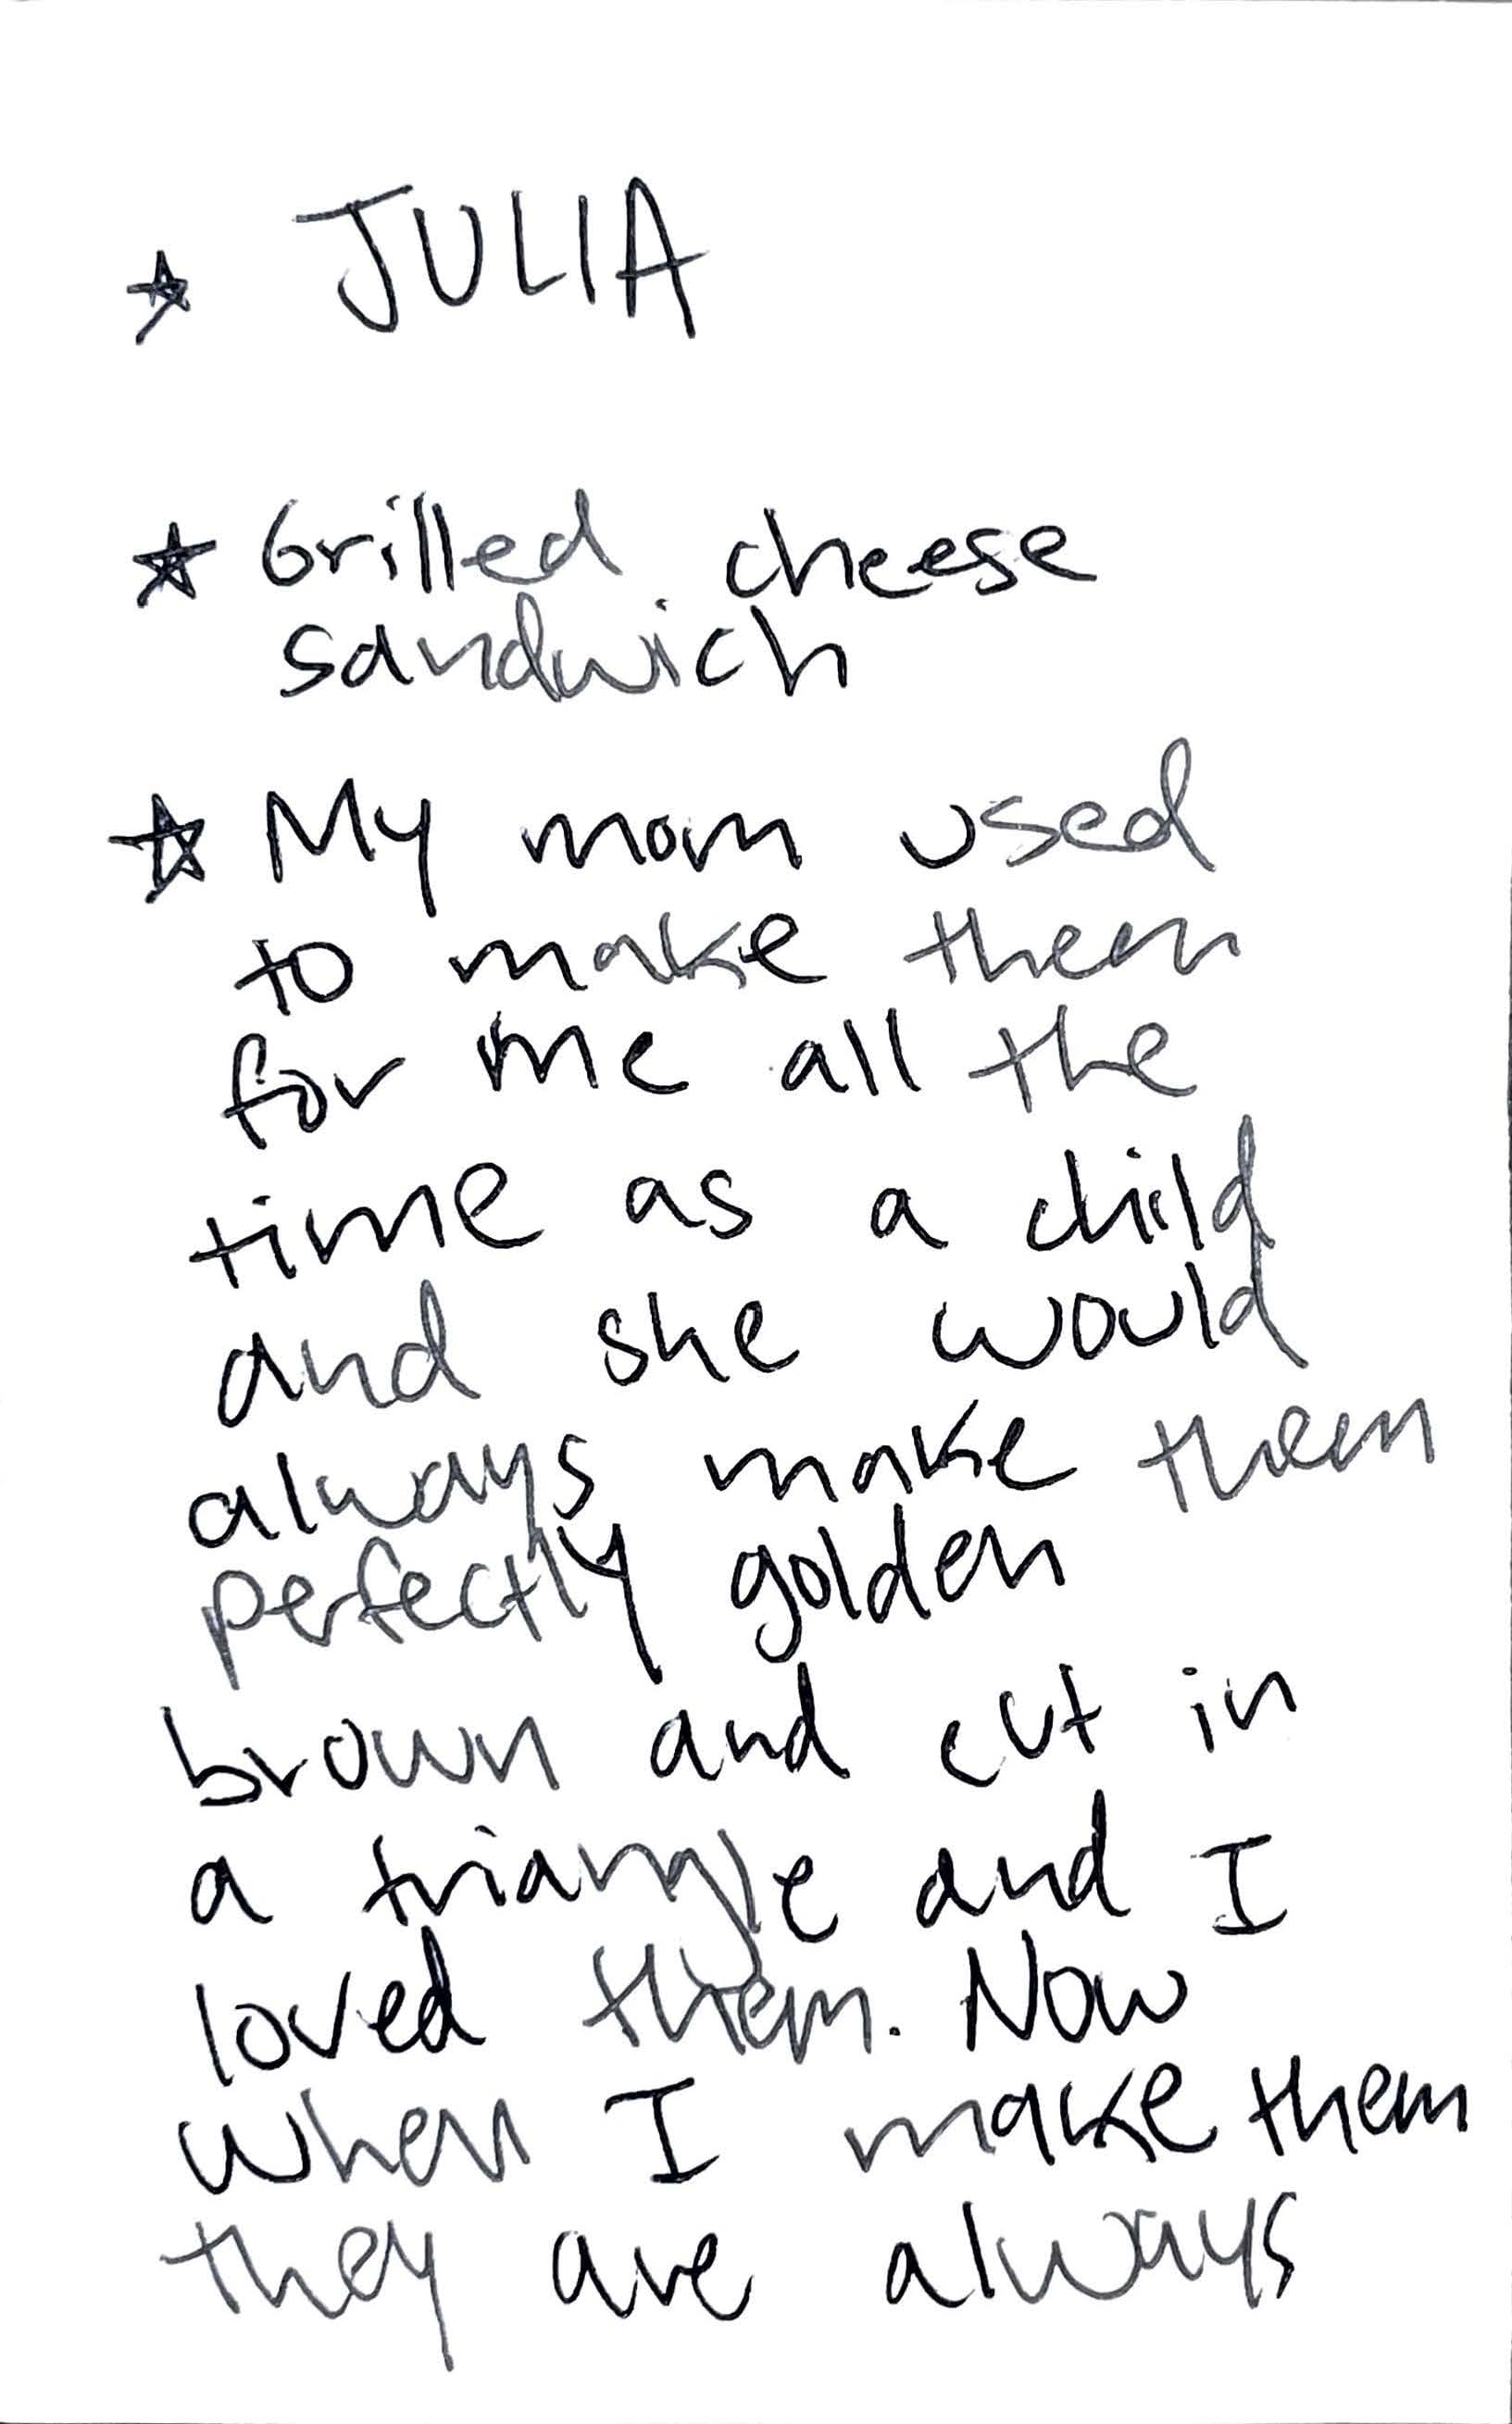 ☆ JULIA
☆ Grilled cheese
sandwich
☆ My mom used
to make them
for me all the
time as a child
and she would
always make them
perfectly golden
brown and cut in
a triangle and I
loved them. Now
when I make them
they are always